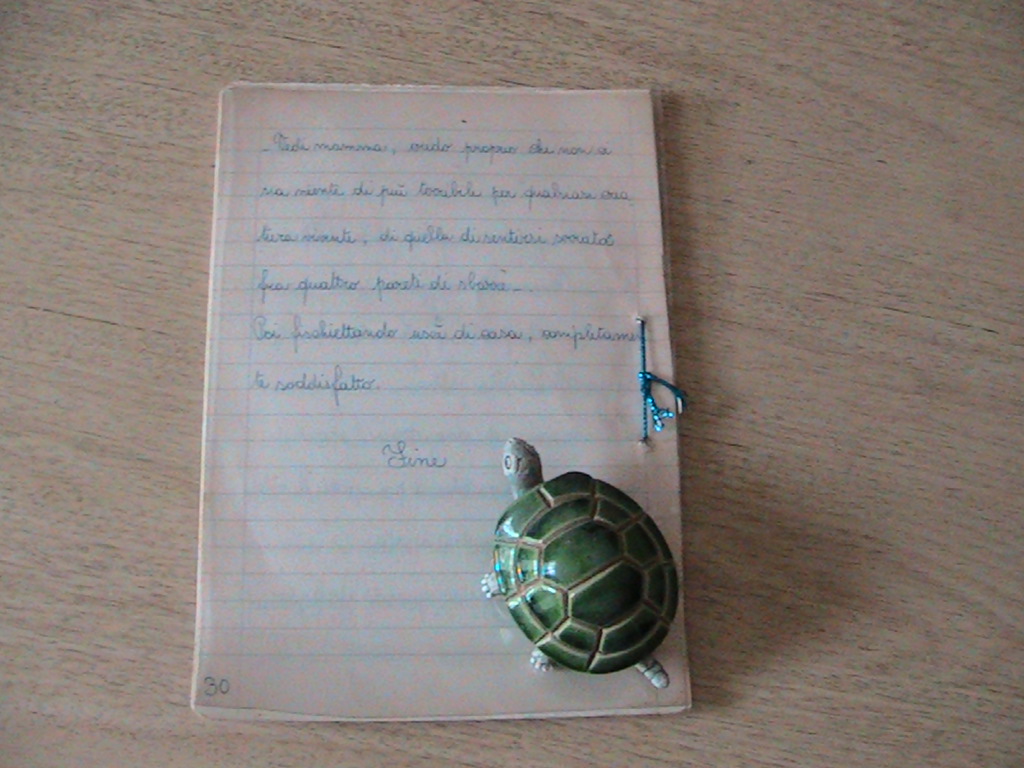 - Vedi mamma, credo proprio che non ci
sia niente di più terribile per qualsiasi crea
tura vivente, di quella di sentirsi serrata
fra quattro pareti di sbarre -.
Poi fischiettando uscì di casa, completamen
te soddisfatto.
Fine
30